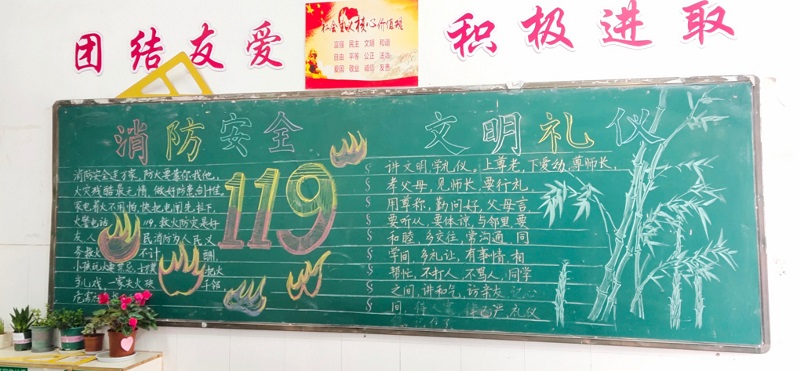 团结友爱
社会主义核心价值观
富强 民主 文明 和谐
自由 平等 公正 法治
爱国 敬业 诚信 友善
积极进取
消防安全
消防安全进万家，防火要靠你我他，
火灾残酷最无情，做好防患
家电着火不用怕，快把电闸先拉下，
火警电话 119，救火防灾是好
友人 民消防为人民 义
务救火 不计
小孩玩火
当儿戏 一家失火
119
文明礼仪
讲文明，学礼仪，上尊老，下爱幼，尊师长，
孝父母，见师长，要行礼，
用尊称，勤问好，父母言
要听从，要体谅，与邻里，要
和睦，多交往，常沟通，同
学间，多礼让，有事情，相
帮忙，不打人，不骂人，同学
之间，讲和气，访亲友
间 礼仪